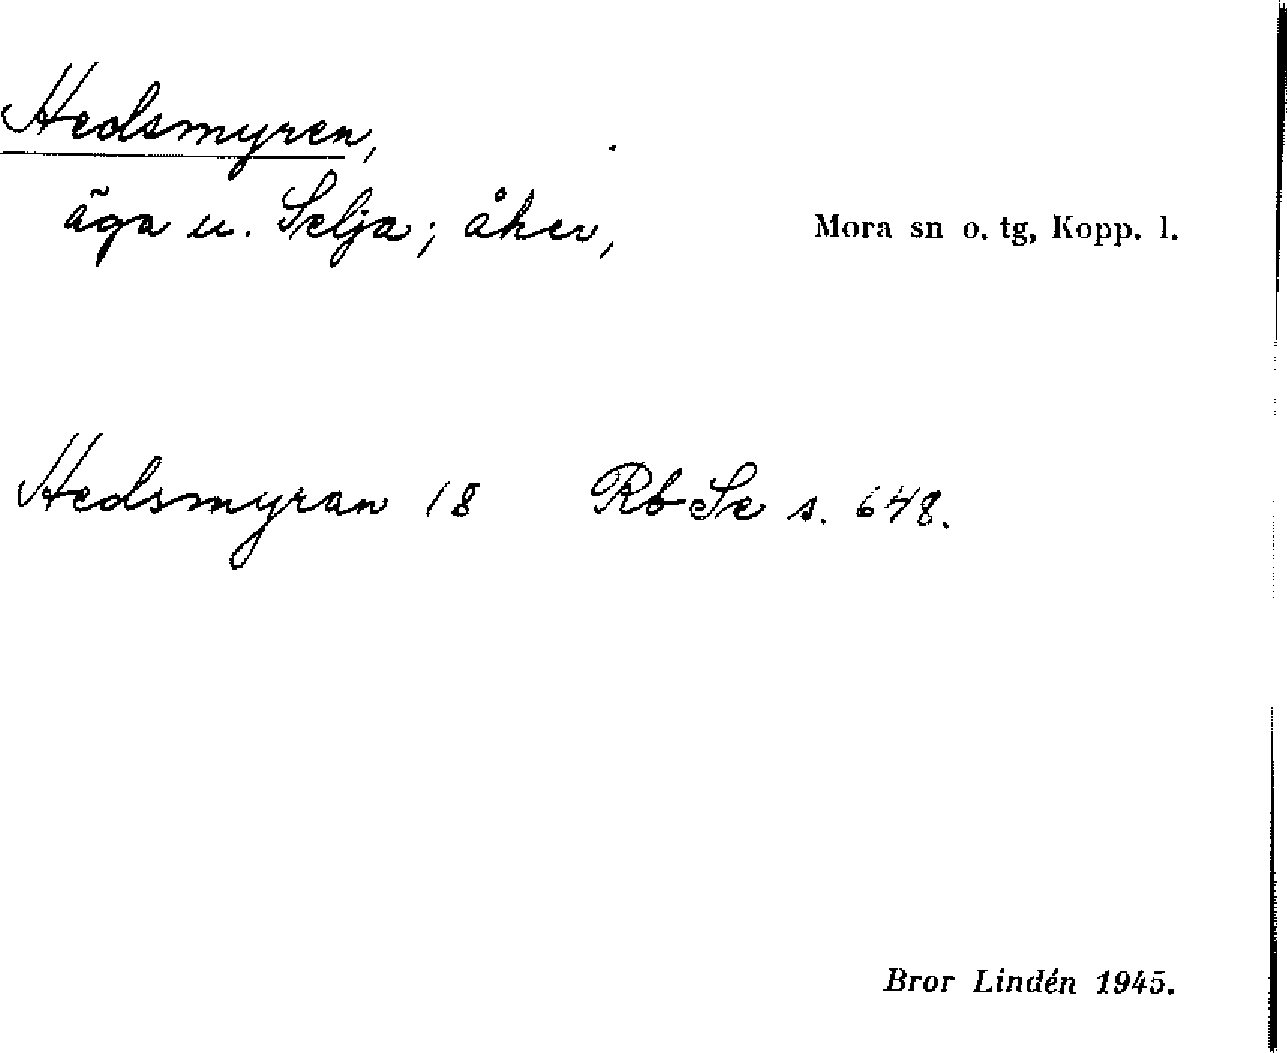 Hedsmyren,
äga u. Selja; åker,
Mora sn o. tg, Kopp. l.
Hedsmyran 18 Rb Se s. 648.
Bror Lindén 1945.